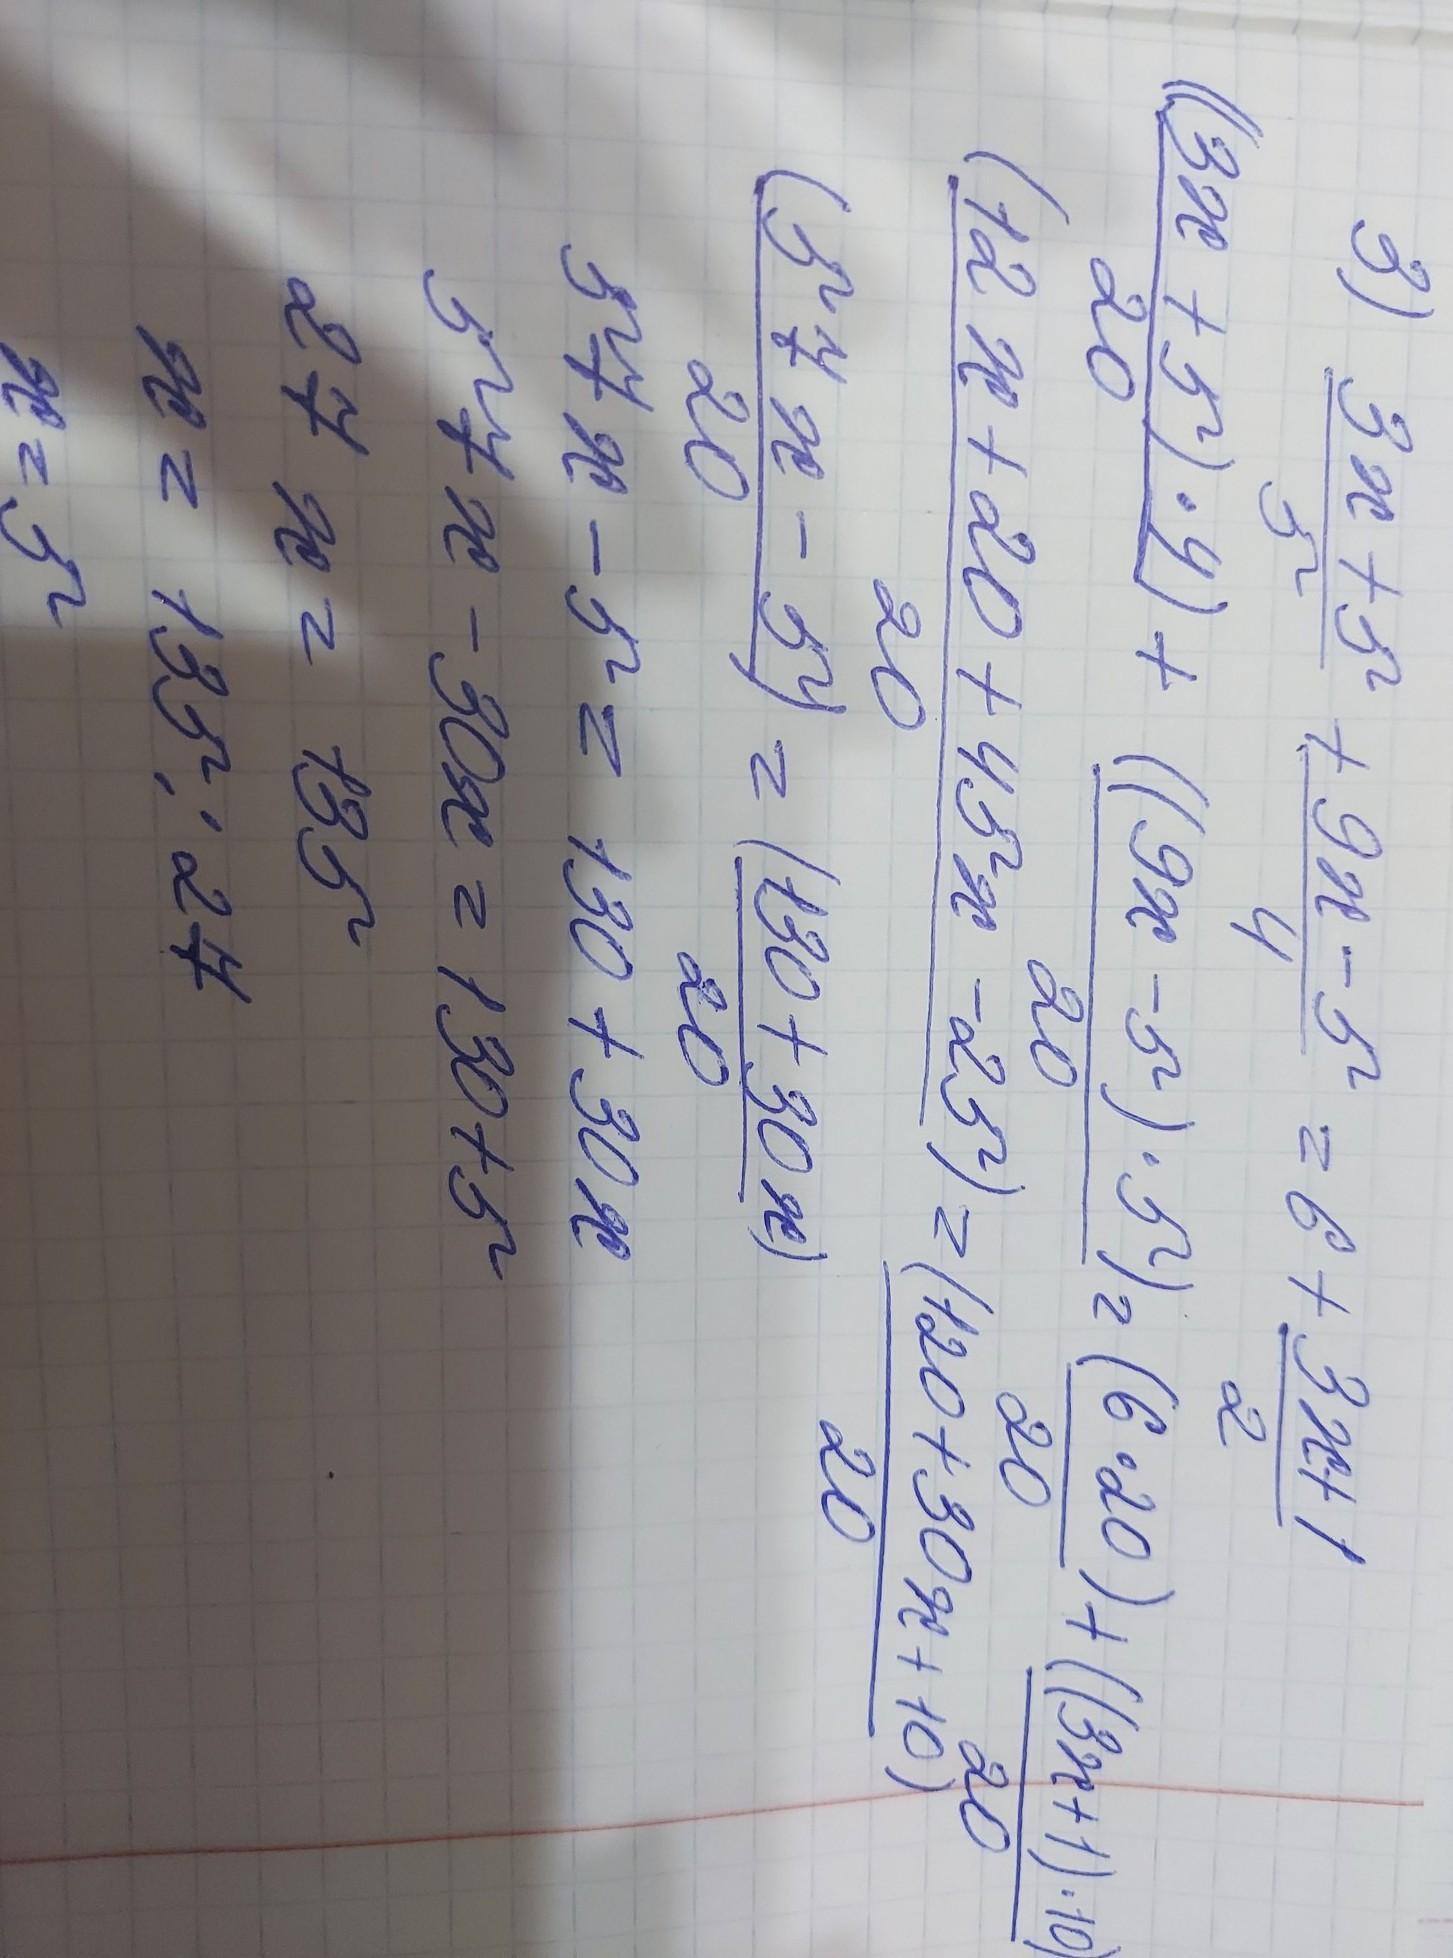 3) (3x+5)/5 + (9x-5)/4 = 6 + (3x+1)/2
((3x+5)·4)/20 + ((9x-5)·5)/20 = (6·20)/20 + ((3x+1)·10)/20
(12x+20+45x-25)/20 = (120+30x+10)/20
(57x-5)/20 = (130+30x)/20
57x-5=130+30x
57x-30x=130+5
27x=135
x=135:27
x=5